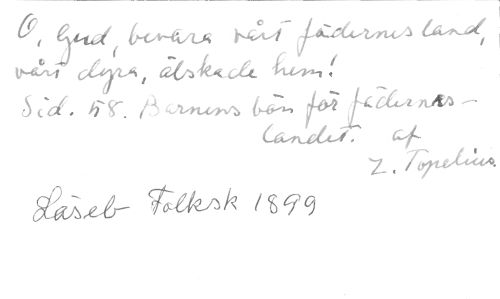 O, Gud, bevara vårt fädernesland,
vårt dyra, älskade hem!
Sid. 58. Barnens bön för fädernes-
landet. af
Z. Topelius.
Läseb Folksk 1899